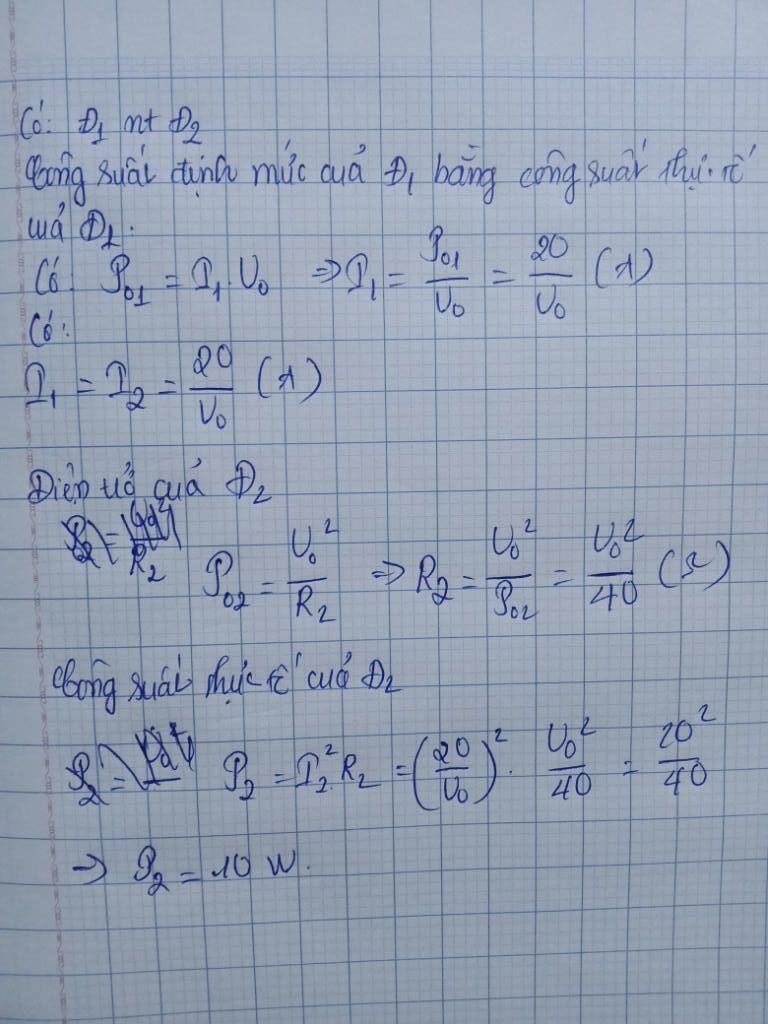 Có: Đ₁ nt Đ₂
Công suất định mức cuả Đ₁ bằng công suất thực tế
cuả Đ₁.
Có P₀₁ = I₁ . U₀ => I₁ = P₀₁/U₀ = 20/U₀ (A)
Có:
I₁ = I₂ = 20/U₀ (A)
Điện trở cuả Đ₂
P₀₂ = U₀²/R₂ => R₂ = U₀²/P₀₂ = U₀²/40 (Ω)
Công suất thực tế cuả Đ₂
P₂ = I₂².R₂ = (20/U₀)² . U₀²/40 = 20²/40
=> P₂ = 10 W.